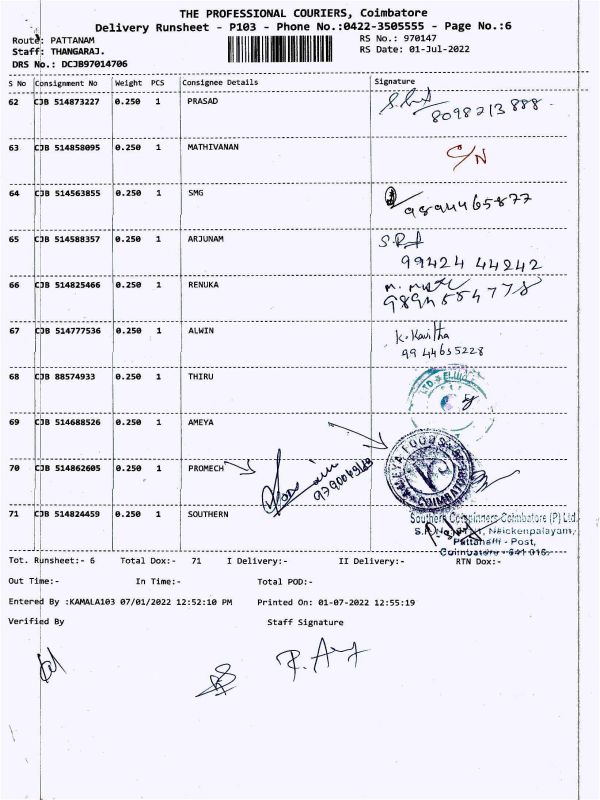 THE PROFESSIONAL COURIERS, Coimbatore
Delivery Runsheet - P103 - Phone No.:0422-3505555 - Page No.:6
Route: PATTANAM
RS No.: 970147
Staff: THANGARAJ.
RS Date: 01-Jul-2022
DRS No.: DCJB97014706
S No Consignment No Weight PCS Consignee Details Signature
62 CJB 514873227 0.250 1 PRASAD
8098213888
63 CJB 514858095 0.250 1 MATHIVANAN C/N
64 CJB 514563855 0.250 1 SMG
9894465877
65 CJB 514588357 0.250 1 ARJUNAM
99424 44242
66 CJB 514825466 0.250 1 RENUKA
67 CJB 514777536 0.250 1 ALWIN K. Kavitha
99 44655228
68 CJB 88574933 0.250 1 THIRU
69 CJB 514688526 0.250 1 AMEYA
70 CJB 514862605 0.250 1 PROMECH
COIMBATORE
71 CJB 514824459 0.250 1 SOUTHERN
Southern Coimbatore (P) Ltd.
Naickenpalayam,
Pattanam - Post,
Coimbatore - 641 016.
Tot. Runsheet:- 6 Total Dox:- 71 I Delivery:- II Delivery:- RTN Dox:-
Out Time:- In Time:- Total POD:-
Entered By :KAMALA103 07/01/2022 12:52:10 PM Printed On: 01-07-2022 12:55:19
Verified By Staff Signature